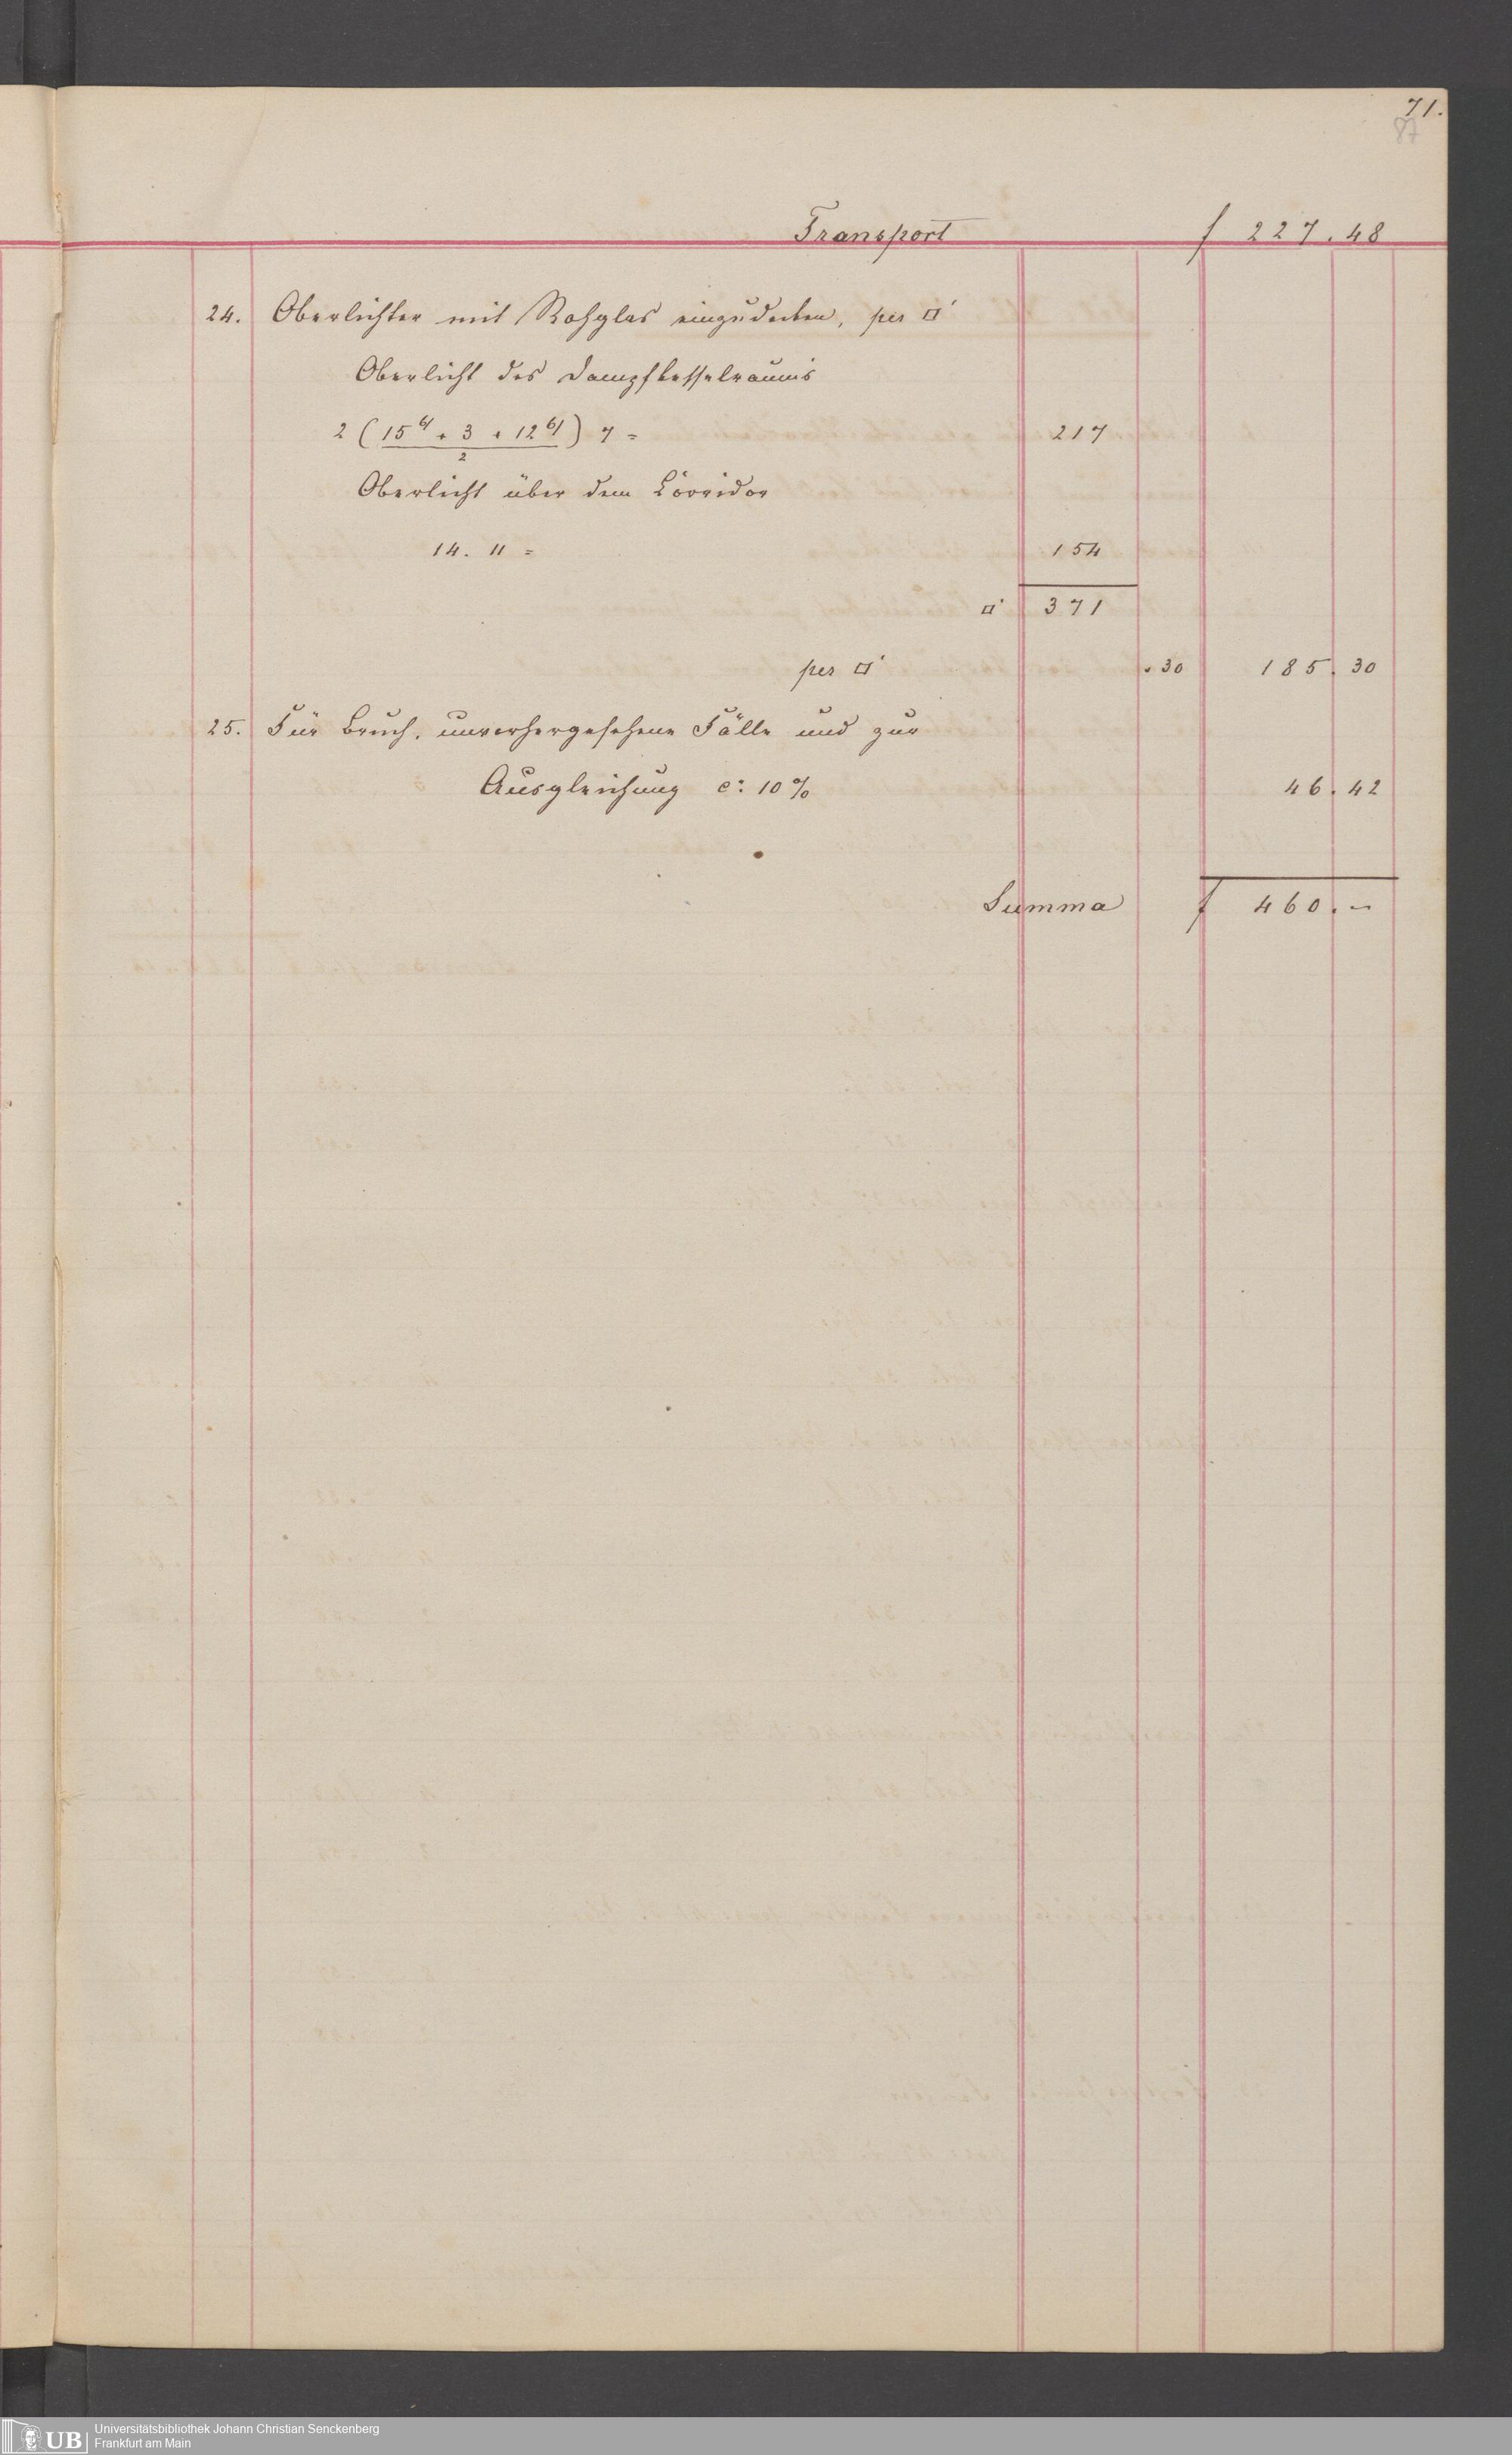 71.
87
Transport f 227.48
24. Oberlichter mit Rohglas einzudecken, per □'
Oberlicht des Dampfkesselraumes
2 (15⁶/ + 3 + 12⁶/) 7 = 217
2
Oberlicht über dem Corridor
14. 11 = 154
□' 371
per □' .30 185.30
25. Für Bruch, unvorhergesehene Fälle und zur
Ausgleichung c: 10% 46.42
Summa f 460.-
UB Universitätsbibliothek Johann Christian Senckenberg
Frankfurt am Main